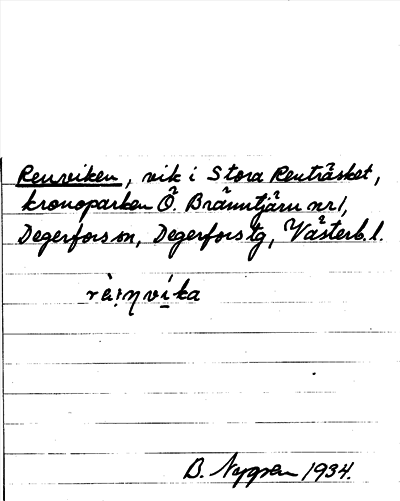 Renviken, vik i Stora Renträsket,
kronoparken Ö. Bränntjärn nr 1,
Degerfors sn, Degerfors tg, Västerb. l.
rè̀:ŋvị̀ka
B. Nygren 1934.